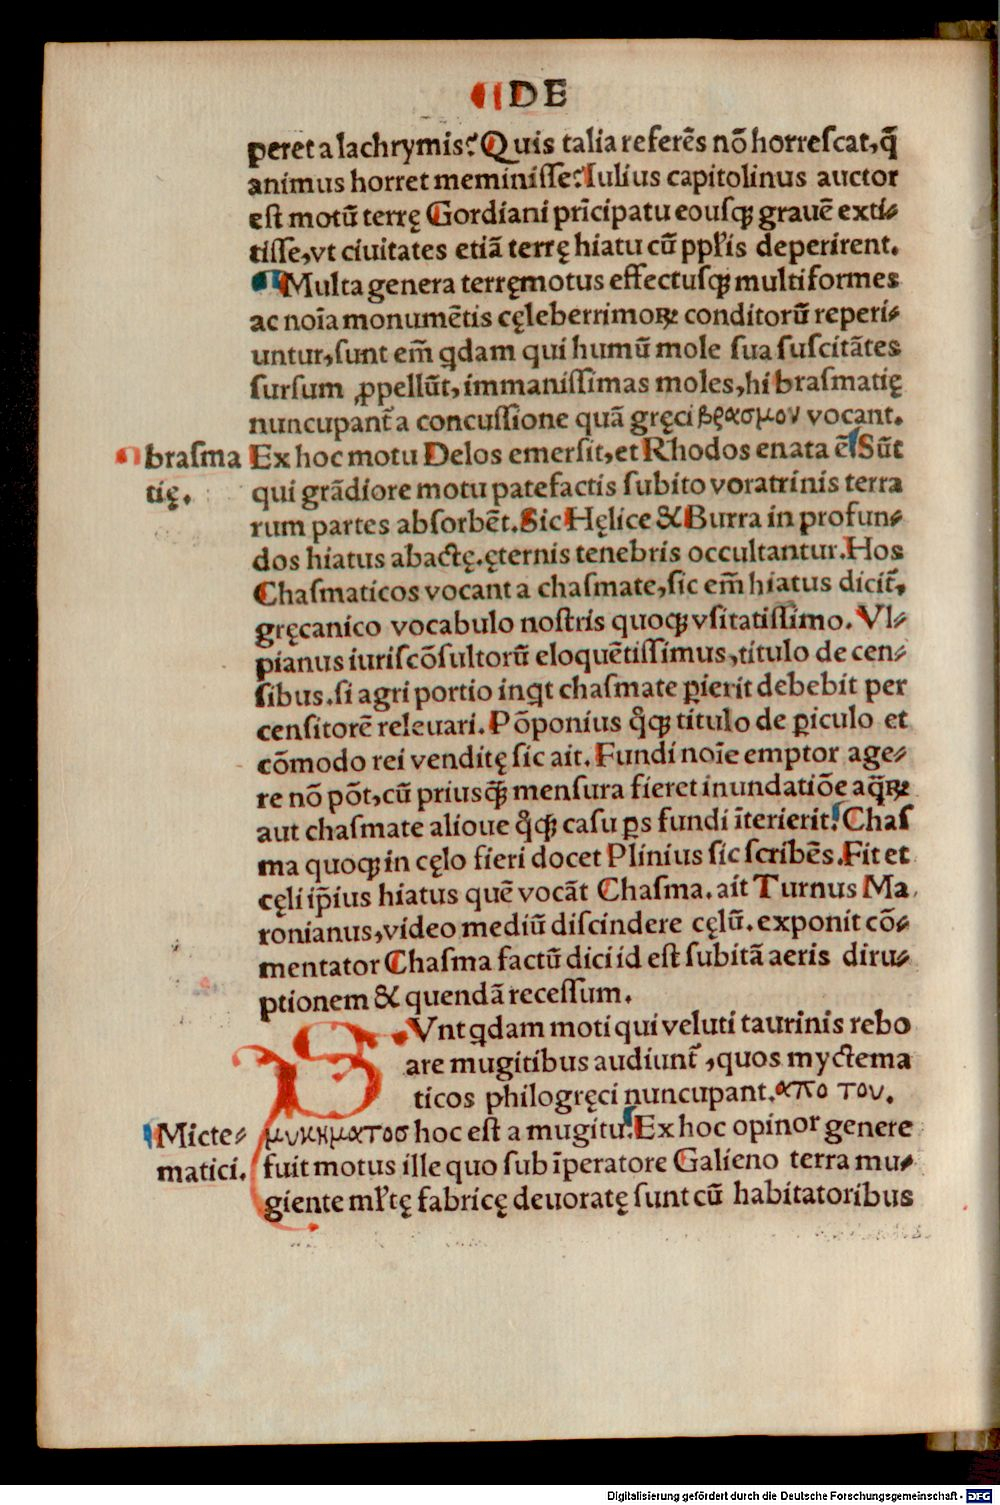 DE
peret a lachrymis? Quis talia referēs nō horreſcat, q̄
animus horret meminiſſe? Iulius capitolinus auctor
eſt motū terrę Gordiani prīcipatu eouſqꝫ grauē exti⸗
tiſſe, vt ciuitates etiā terrę hiatu cū pprīs deperirent.
Multa genera terręmotus effectuſqꝫ multiformes
ac noīa monumētis cęleberrimoꝝ conditorū reperi⸗
untur, ſunt em̄ qdam qui humū mole ſua ſuſcitātes
ſurſum ꝓpellūt, immaniſſimas moles, hi braſmatię
nuncupant̄ a concuſſione quā gręci βρασμον vocant.
braſma
tię.
Ex hoc motu Delos emerſit, et Rhodos enata ē Sūt
qui grādiore motu patefactis ſubito voratrinis terra
rum partes abſorbēt. Sic Hęlice & Burra in profun⸗
dos hiatus abactę. ęternis tenebris occultantur. Hos
Chaſmaticos vocant a chaſmate, ſic em̄ hiatus dicit̄,
gręcanico vocabulo noſtris quoqꝫ vſitatiſſimo. Vl⸗
pianus iuriſcōſultorū eloquētiſſimus, titulo de cen⸗
ſibus. ſi agri portio inqt chaſmate ꝑierit debebit per
cenſitorē releuari. Pōponius qͦqꝫ titulo de ꝑiculo et
cōmodo rei venditę ſic ait. Fundi noīe emptor age⸗
re nō pōt, cū priusqꝫ̄ menſura fieret inundatiōe aq̄ꝝ
aut chaſmate alioue qͦqꝫ caſu ꝑs fundi īterierit. Chaſ
ma quoqꝫ in cęlo fieri docet Plinius ſic ſcribēs. Fit et
cęli ip̄ius hiatus quē vocāt Chaſma. ait Turnus Ma
ronianus, video mediū diſcindere cęlū. exponit cō⸗
mentator Chaſma factū dici id eſt ſubitā aeris diru⸗
ptionem & quendā receſſum.
SVnt qdam moti qui veluti taurinis rebo
are mugitibus audiunt̄, quos myctema
ticos philogręci nuncupant. απο του.
Micte⸗
matici.
μυκηματοσ hoc eſt a mugitu. Ex hoc opinor genere
fuit motus ille quo ſub īperatore Galieno terra mu⸗
giente mƚtę fabricę deuoratę ſunt cū habitatoribus
Digitalisierung gefördert durch die Deutsche Forschungsgemeinschaft - DFG